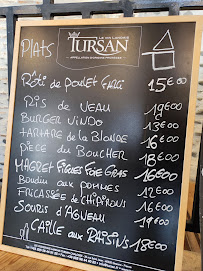 LE VIN LANDAIS
TURSAN
APPELLATION D'ORIGINE PROTÉGÉE
Plats
Rôti de poulet farci 15€00
Ris de veau 19€00
Burger vindo 13€00
Tartare de la Blonde 16€00
Pièce du Boucher 18€00
Magret Figues Foie Gras 16€00
Boudin aux pommes 12€00
Fricassée de chipirons 16€00
Souris d'Agneau 19€00
Caille aux Raisins 18€00